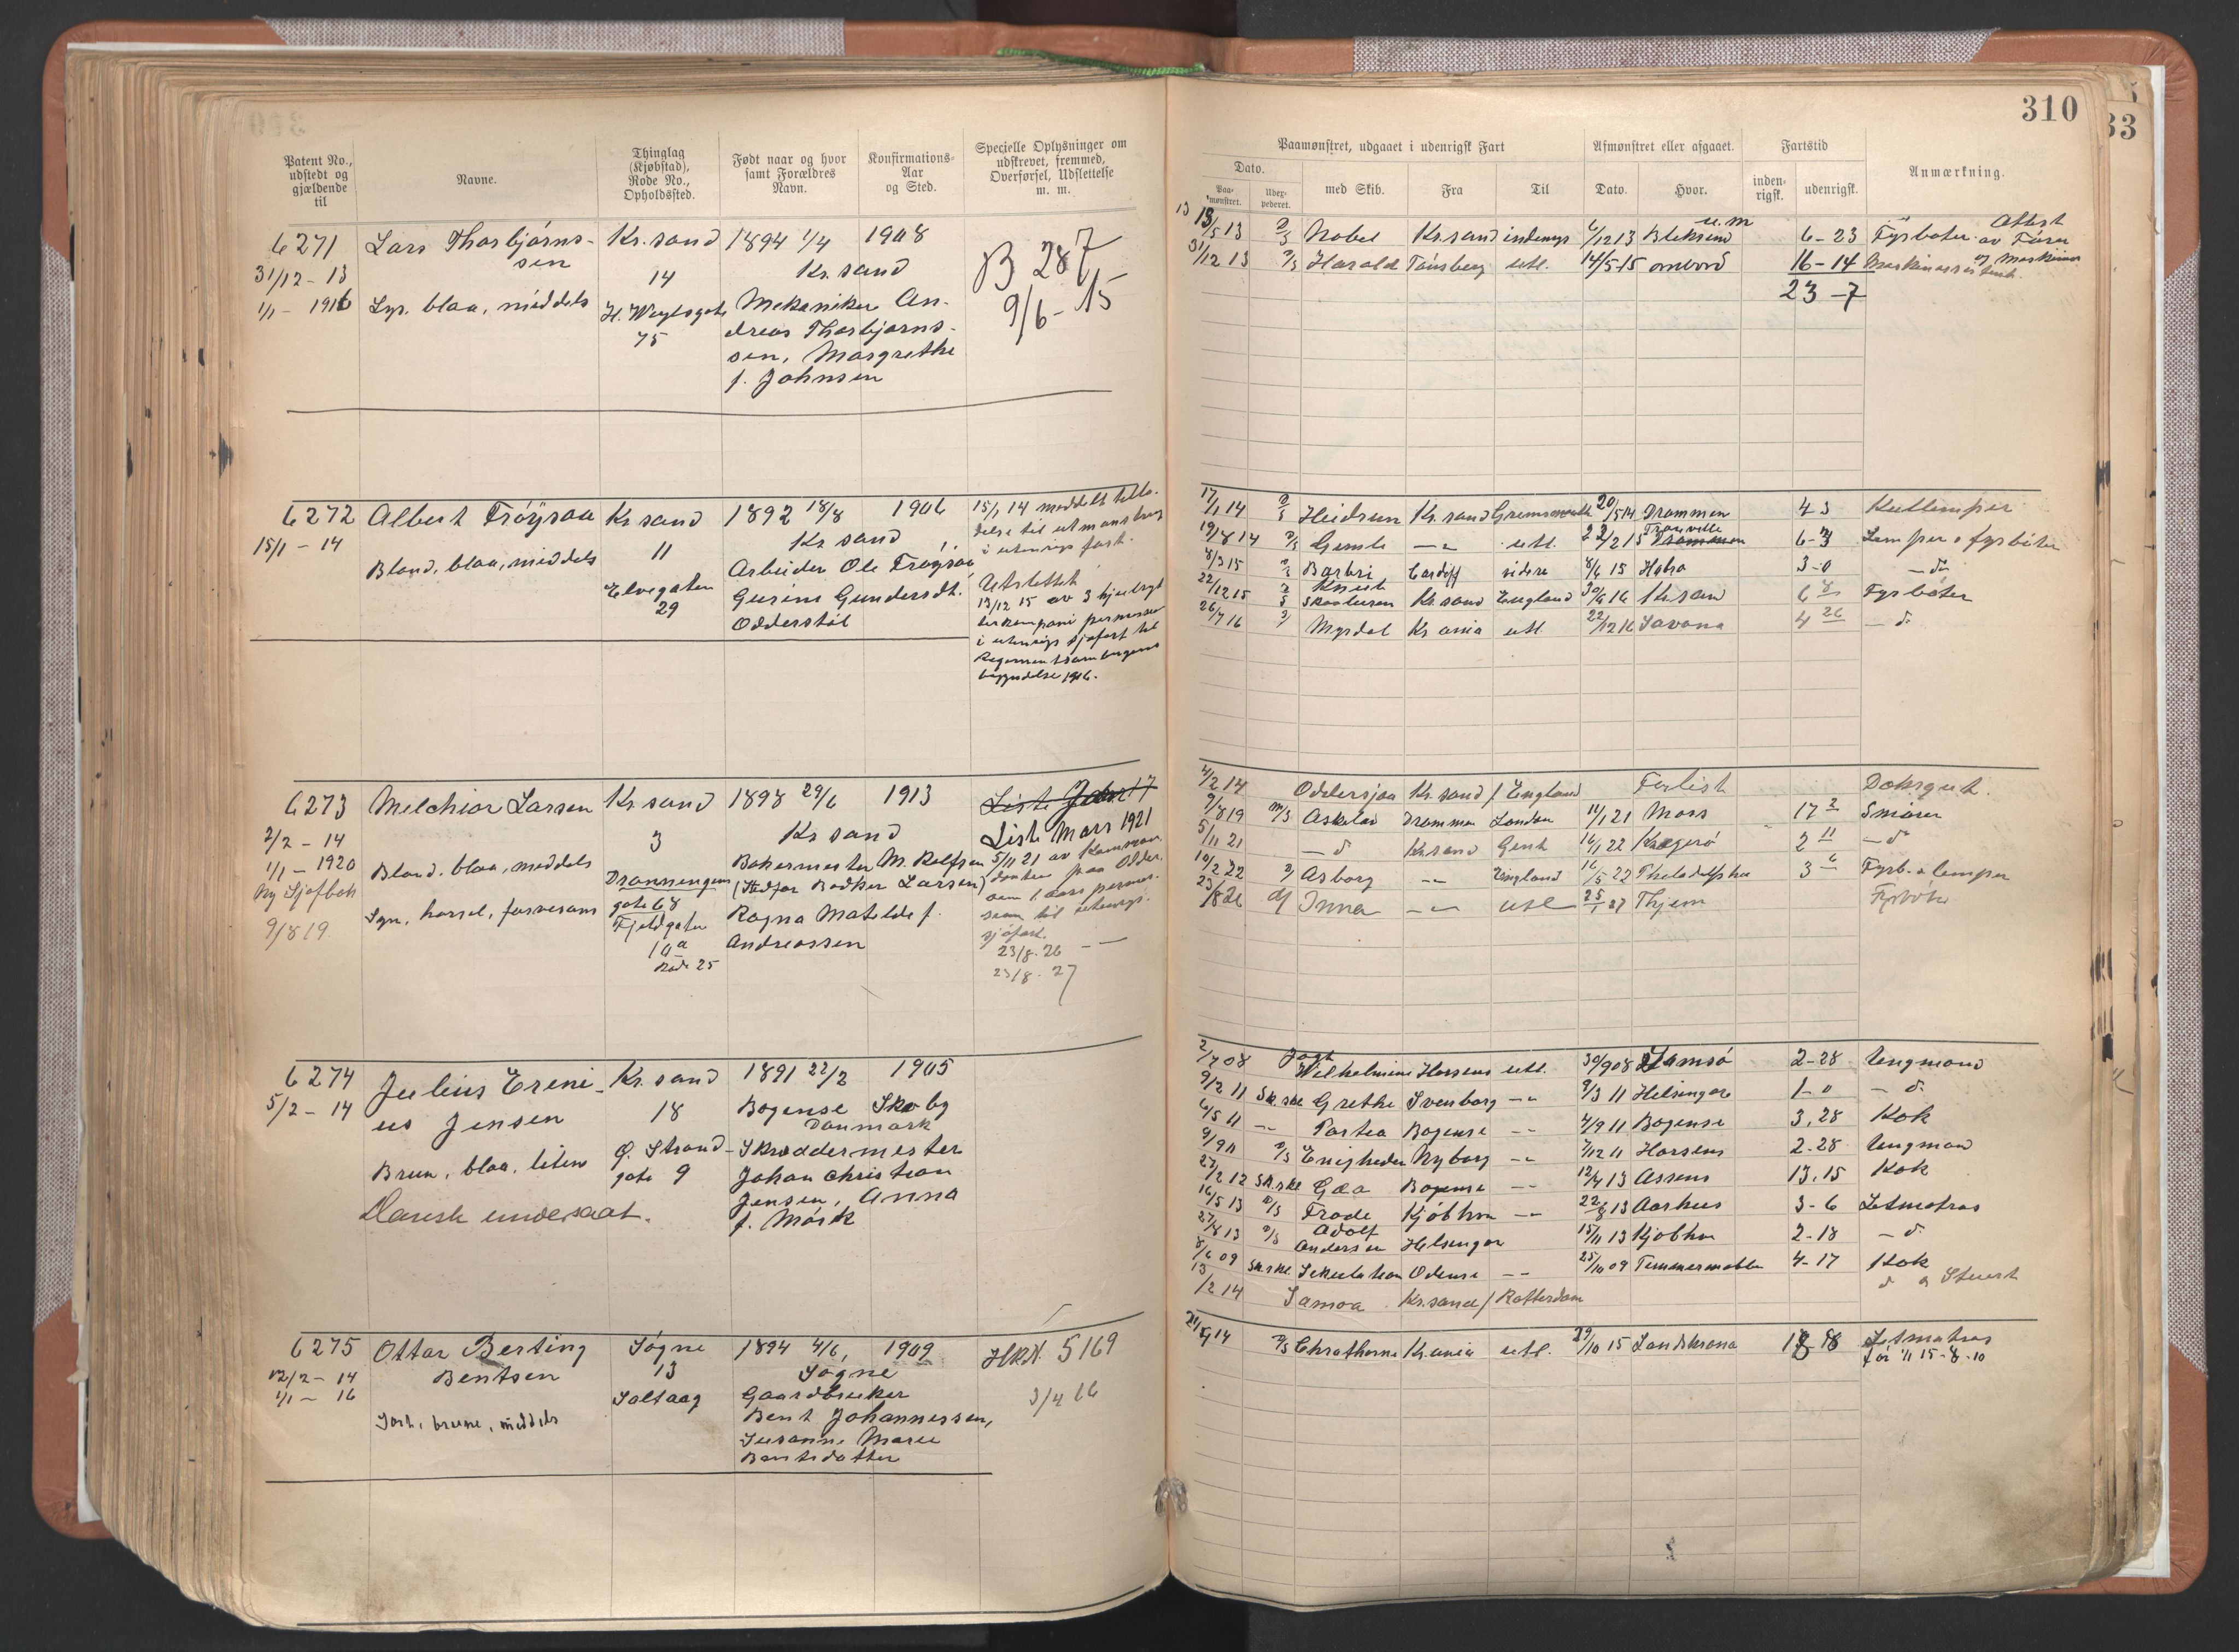 310
33
Patent No., udstedt og gjældende til
Navne.
Thinglag (Kjøbstad), Rode No., Opholdssted.
Født naar og hvor samt Forældres Navn.
Konfirmations-Aar og Sted.
Specielle Oplysninger om udskrevet, fremmed, Overførsel, Udslettelse m. m.
Paamønstret, udgaaet i udenrigsk Fart
Afmønstret eller afgaaet.
Fartstid
Anmærkning.
Dato.
Paa-mønstret.
med Skib.
Fra
Til
Dato.
Hvor.
inden-rigsk.
udenrigsk.
6271
Lars Thorbjørns-
sen
Kr.sand
1894 1/4
1908
31/12 - 13
14
Kr. sand
B 287
1/1 - 1916
Lys. blaa, middels
H. Wergelsgate
75
Mekaniker An-
dreas Thorbjørns-
sen, Margrethe
f. Johnsen
9/6 - 15
13/5 13 D/S Nobel Kr.sand indenrigs 6/12 13 6-23 Fyrbøter
Attest av Fører og Maskinist
31/12 13 D/S Harald Tønsberg utl. 14/5-15 ombord 16-14 Maskinassistent
23-7
6272
Albert Frøysaa
Kr sand
1892 18/8
1906
15/1 - 14
11
Kr sand
Blond, blaa, middels
Elvegaten
29
Arbeider Ole Frøysaa,
Gurine Gundersdt.
Odderstøl
15/1 14 meddelt tilla-
delse til utmønstring
i utenrigs fart.
Utslettet
13/12 15 av 3 hjulryt
terkompani permission
i utenrigs sjøfart til
Regimentsamlingens
begyndelse 1916.
17/1 14 D/S Heidrun Kr.sand Grimsmouth 20/5 14 Drammen 4-3 Kullemper
19/8 14 D/S Gimle -"- utl. 22/2 15 Trouville 6-3 Lemper o fyrbøter
8/3 15 D/S Barbri Cardiff videre 8/6 15 3-0 - d-
22/12 15 D/S Knut Skaaluren Kr.sand England 30/6 16 Kr.sand 6 8 Fyrbøter
26/7 16 D/ Myrdal Kr ania utl. 22/12 16 Savona 4 26 - d-
6273
Melchior Larsen
Kr sand
1898 29/6
1913
2/2 - 14
3
Kr sand
Liste Mars 1921
1/1 - 1920
Ny Sjøfbok
9/8 19
Blond. blaa, middels
Syn, hørsel, farvesans
Dronningens
gate 68
Fjeldgaten
10 a
Rode 25
Bakermester M. Rolfsen
(Stedfar Bødker Larsen)
Ragna Matilde f.
Andreassen
5/11 21 av Komman
danten paa Odder.
øen 1 aars permis-
sion til utenrigs.
sjøfart.
23/8. 26 - -
23/8. 27
4/2 14 Oddersjaa Kr.sand / England Forlist Dæksgut.
9/8 19 M/S Askelad Drammen London 11/1 21 Moss 17 2 Smører
5/11 21 - d Kr.sand Gent 16/1 22 Kragerø 2 11 - d-
10/2 22 D/ Asborg -"- England 16/5 22 3 6 Fyrb. o lemper
23/8 26 D/ Inna -"- utl 25/1 27 Fyrbøter
6274
Julius Ereni-
us Jensen
Kr. sand
1891 22/2
1905
5/2 - 14
18
Bogense Skoby
Danmark
Brun, blaa, liten
Ø. Strand-
gate 9
Skræddermester
Johan Christian
Jensen, Anna
f. Mørk
Dansk undersaat.
2/7 08 Jagt Wilhelmine Horsens utl. 30/9 08 Samsø 2-28 Ungmand
9/2 11 Sk.sk. Grethe Svenborg -"- 9/3 11 Helsingør 1-0 - d-
6/5 11 -"- Portea Bogense -"- 4/9 11 Bogense 3,28 Kok
9/9 11 D/S Enigheden Nyborg -"- 7/12 11 Horsens 2-28 Ungmand
27/2 12 Sk.sk. Gæa Bogense -"- 12/4 13 Assens 13,15 Kok
16/5 13 D/S Frode Kjøbhvn -"- 22/8 13 Aarhus 3-6 Letmatros
27/8 13 D/S Adolf Andersen Helsingør 15/11 13 Kjøbhvn 2-18 - d-
8/6 09 Sk.sk. Odense -"- 25/10 09 4-17 Kok
13/2 14 Samoa Kr.sand / Rotterdam d og Stuert
6275
Ottar Berting
Bentsen
Søgne
1894 4/6,
1909
12/2 - 14
1/1 - 16
13
Søgne
Sort, brune, middels
Gaardbruker
Bent Johannessen,
Susanne Marie
Bentsdatter
5169
3/4 16
D/S Kr.ania utl. 29/10 15 Landskrona 18 Letmatros